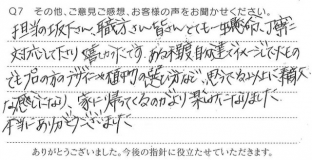 Q7 その他、ご意見ご感想、お客様の声をお聞かせください。
担当の坂下さん、職方さん皆さんとても一生懸命、丁寧に
対応して下さり 良かったです。ある程度自分達でイメージしていたもの
でもプロの方のデザインや植物の選び方などで、思ってる以上に素敵
な感じになり、家に帰ってくるのがより楽しみになりました
本当にありがとうございました
ありがとうございました。今後の指針に役立たせていただきます。